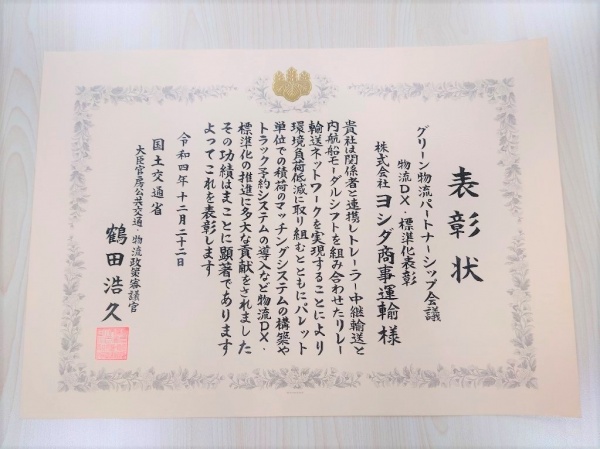 表彰状
グリーン物流パートナーシップ会議
物流DX・標準化表彰
株式会社 ヨシダ商事運輸 様
貴社は関係者と連携しトレーラー中継輸送と
内航船モーダルシフトを組み合わせたリレー
輸送ネットワークを実現することにより
環境負荷低減に取り組むとともにパレット
単位での積荷のマッチングシステムの構築や
トラック予約システムの導入など物流DX・
標準化の推進に多大な貢献をされました
その功績はまことに顕著であります
よってこれを表彰します
令和四年十二月二十二日
国土交通省
大臣官房公共交通・物流政策審議官
鶴田浩久